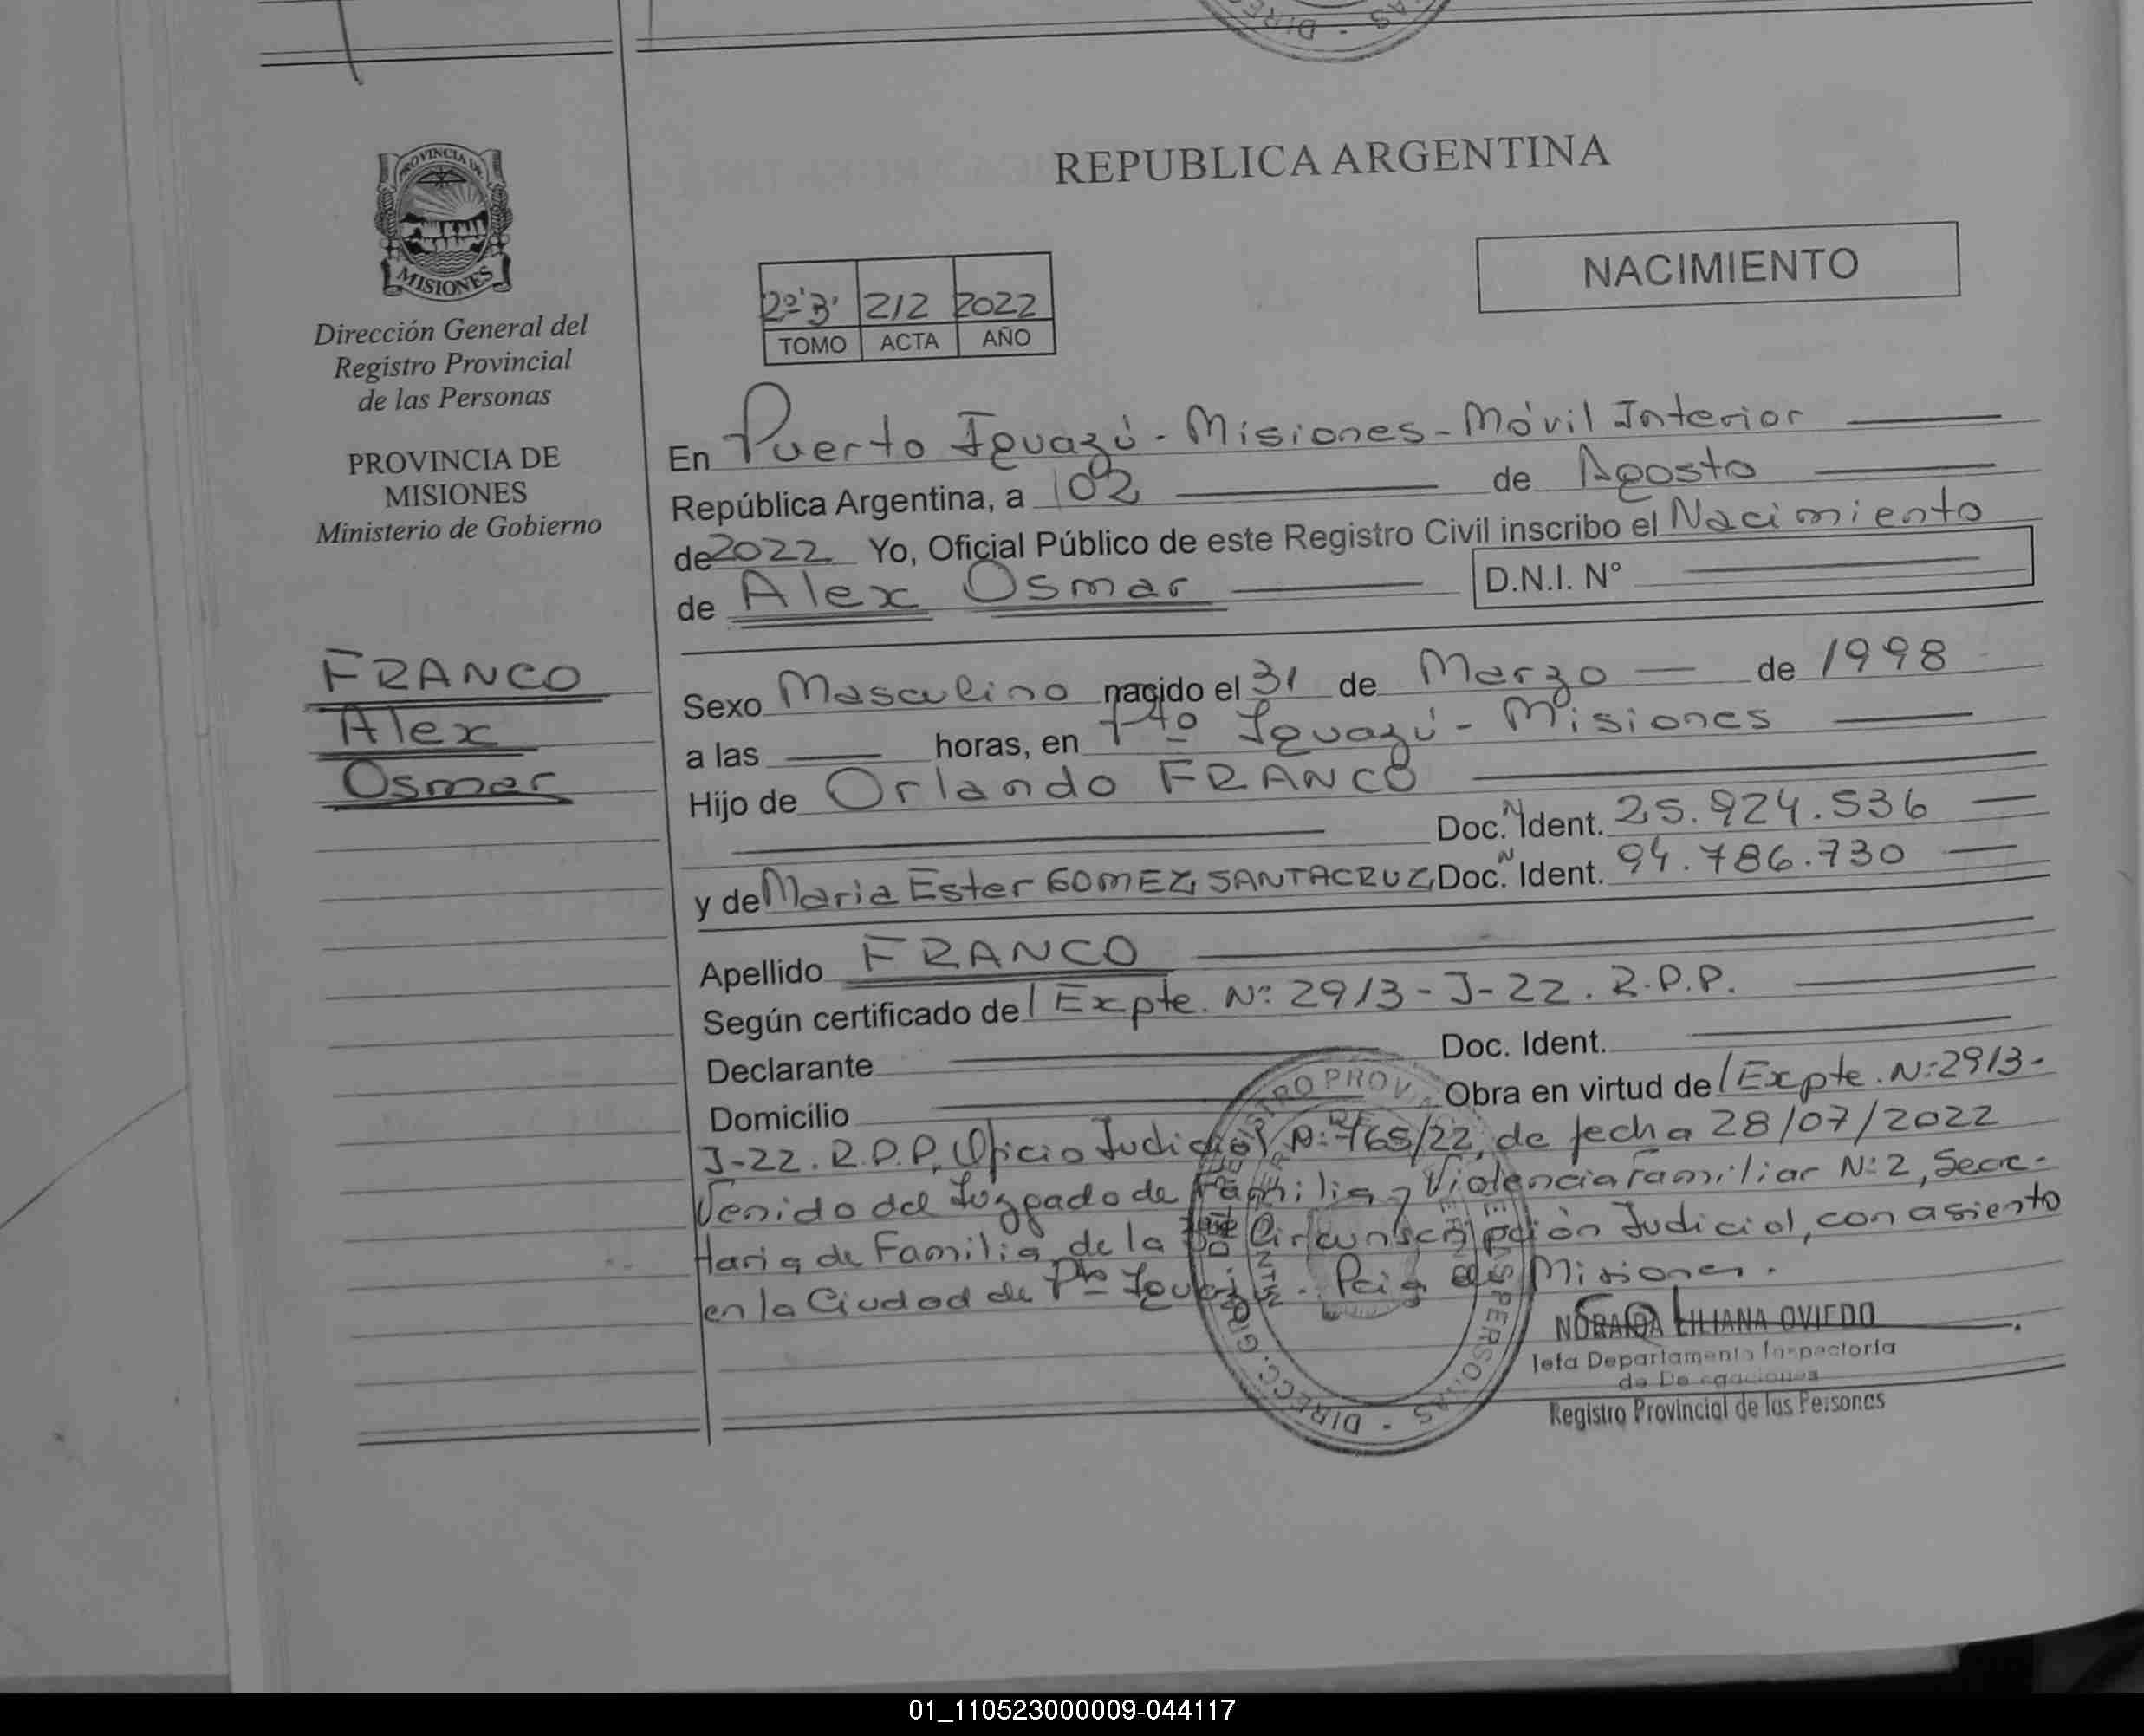 PROVINCIA DE
MISIONES
Dirección General del
Registro Provincial
de las Personas
PROVINCIA DE
MISIONES
Ministerio de Gobierno
FRANCO
Alex
Osmar
REPUBLICA ARGENTINA
NACIMIENTO
2º'3' 212 2022
TOMO ACTA AÑO
En Puerto Iguazú - Misiones - Móvil Interior
República Argentina, a 02 de Agosto
de 2022 Yo, Oficial Público de este Registro Civil inscribo el Nacimiento
de Alex Osmar D.N.I. N°
Sexo Masculino nacido el 31 de Marzo de 1998
a las horas, en Pto Iguazú - Misiones
Hijo de Orlando FRANCO
Doc. N Ident. 25.924.536
y de Maria Ester GOMEZ SANTACRUZ Doc. N Ident. 94.786.730
Apellido FRANCO
Según certificado de / Expte. Nº 2913 - J - 22. R.P.P.
Declarante Doc. Ident.
Domicilio Obra en virtud de / Expte. Nº 2913-
J-22. R.P.P, Oficio Judicial Nº 765/22, de fecha 28/07/2022
Venido del Juzgado de Familia y Violencia Familiar Nº 2, Secre-
taria de Familia de la Circunscripción Judicial, con asiento
en la Ciudad de Pto Iguazú. Pcia de Misiones.
NORAIDA LILIANA OVIEDO
Jefa Departamento Inspectoría
de Delegaciones
Registro Provincial de las Personas
01_110523000009-044117